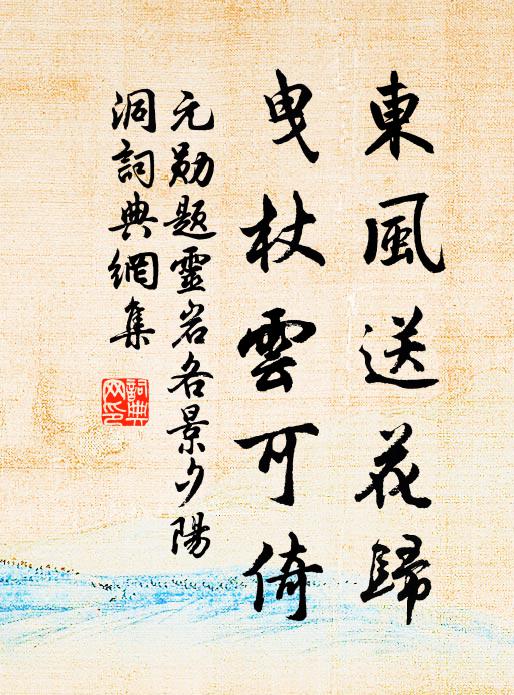 東風送花歸
曳杖雲可倚
元勛题靈岩各景夕陽
洞詞典網集
詞典
网印